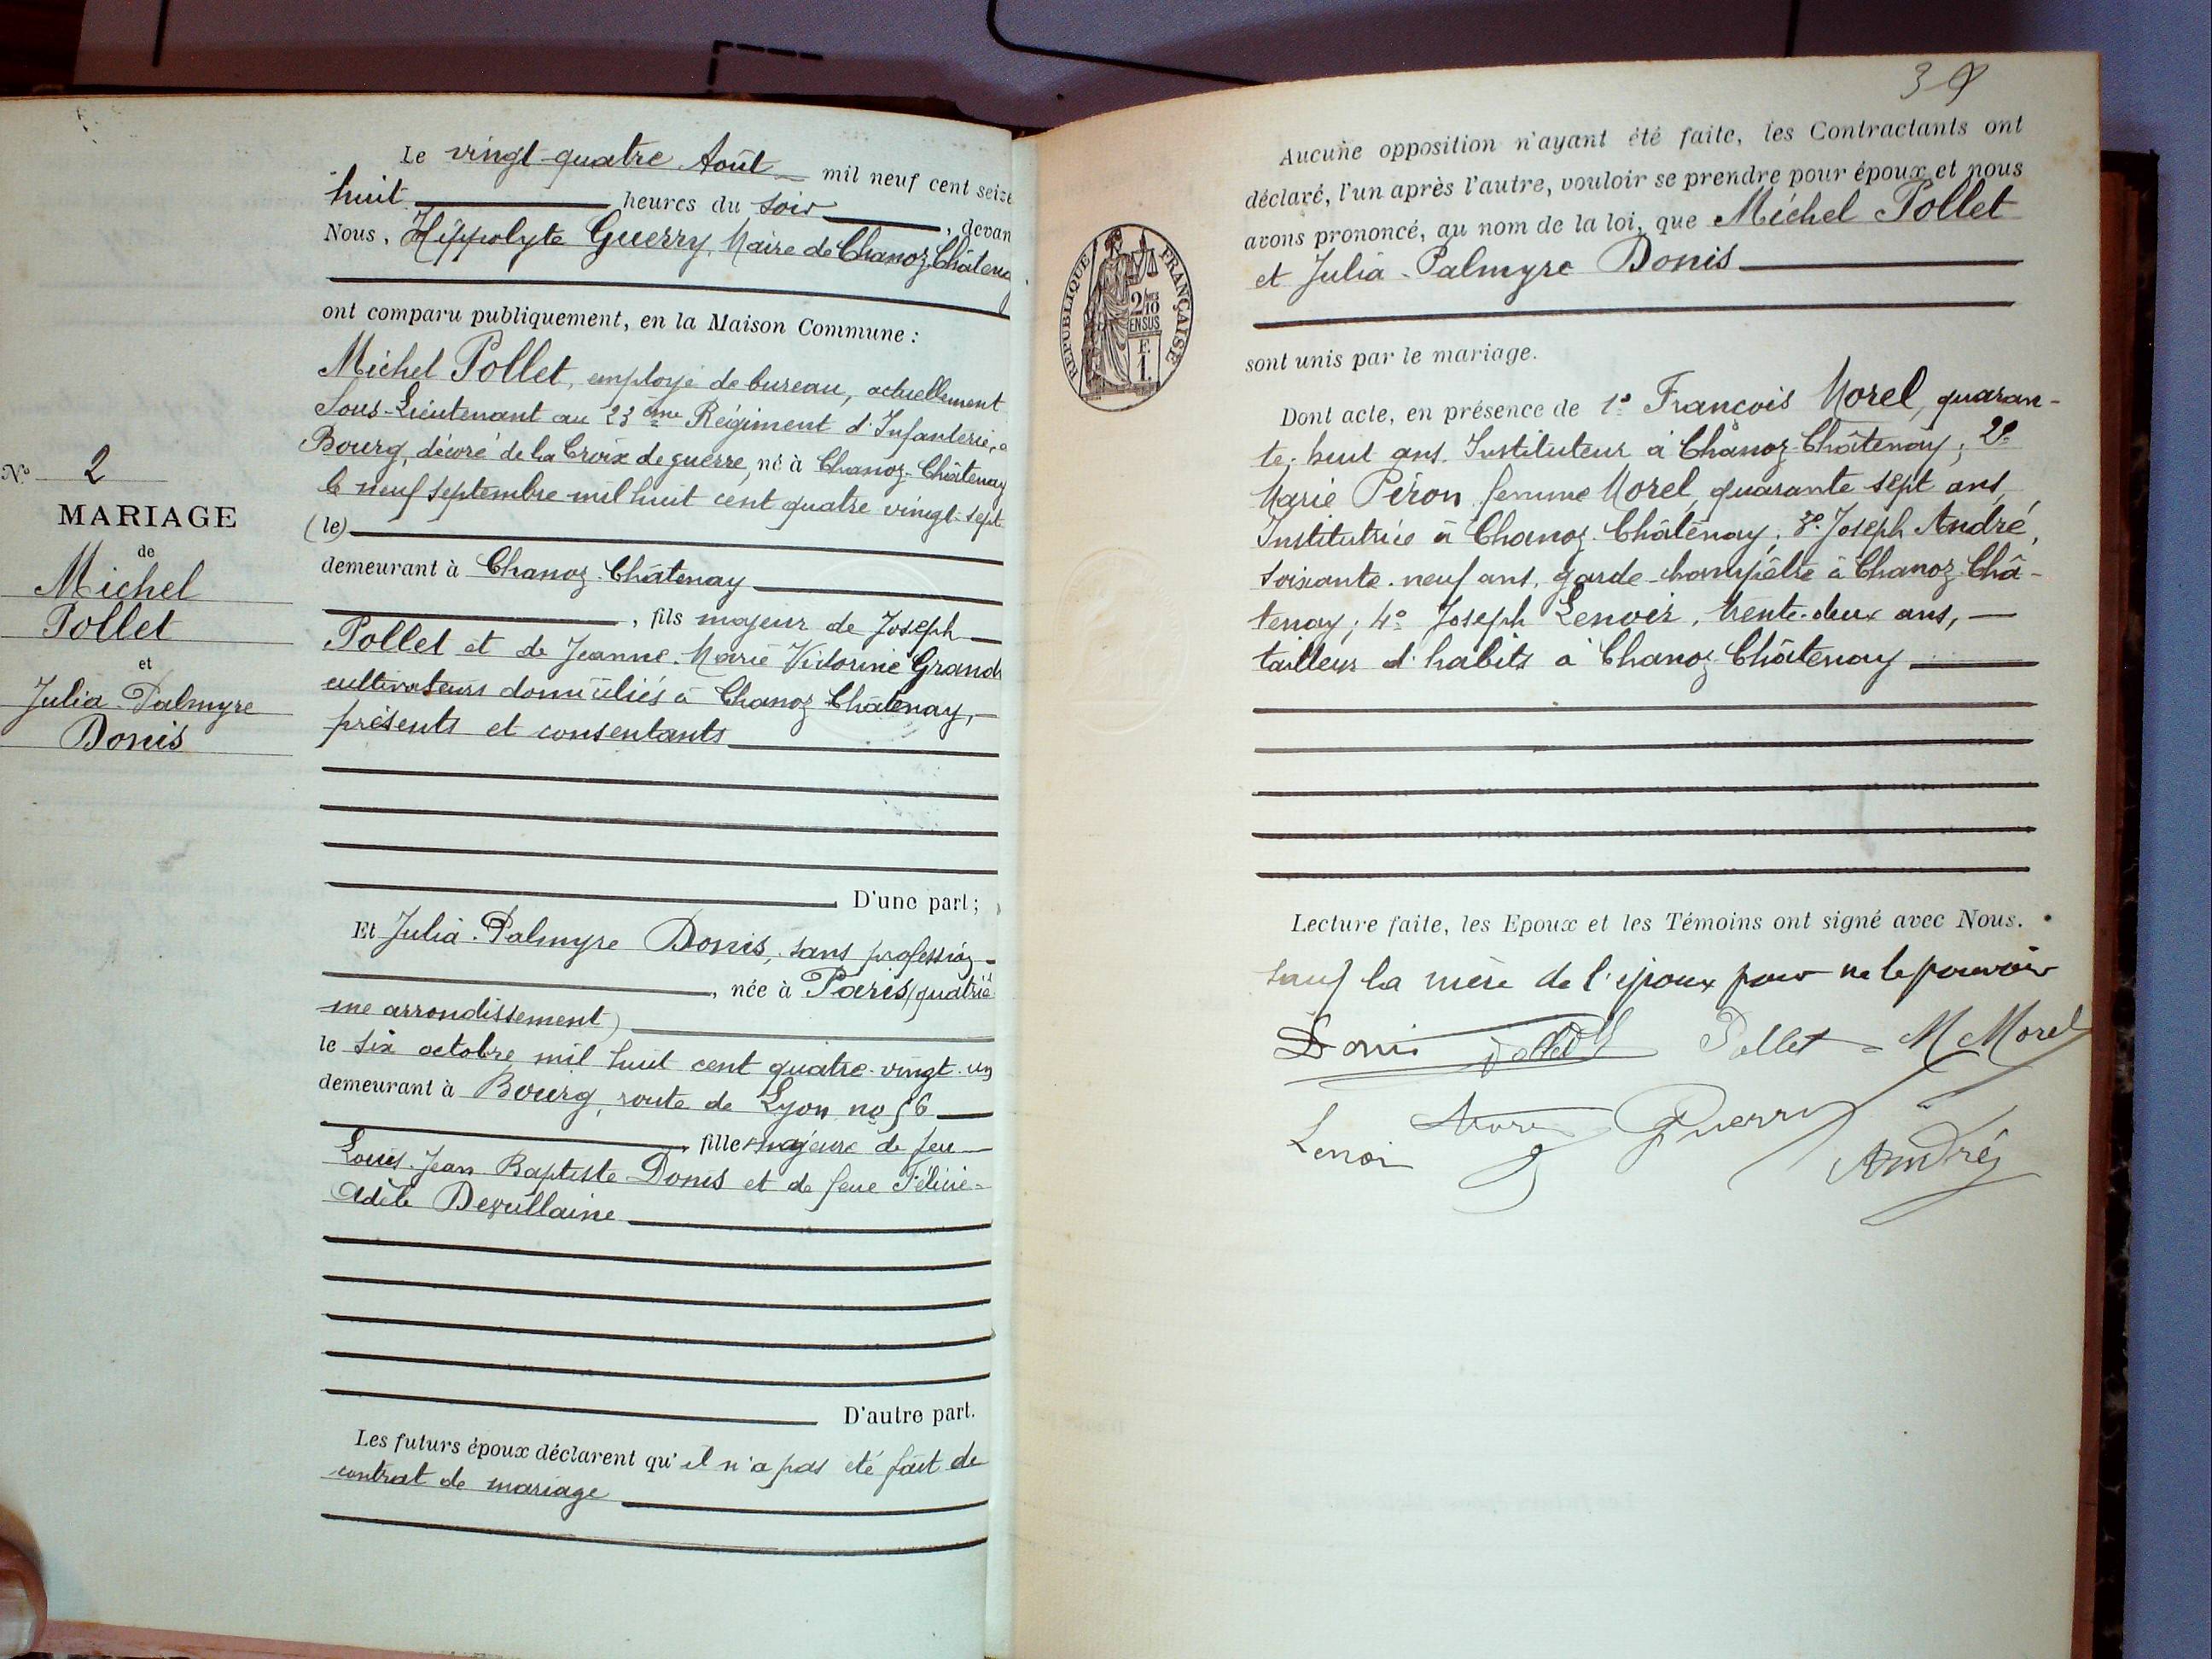 N° 2
MARIAGE
de
Michel
Pollet
et
Julia-Palmyre
Donis
Le vingt-quatre Août mil neuf cent seize
huit heures du soir, devan
Nous, Hippolyte Guerry, Maire de Chanoz-Châtenay
ont comparu publiquement, en la Maison Commune :
Michel Pollet, employé de bureau, actuellement
Sous-Lieutenant au 23ème Régiment d'Infanterie, à
Bourg, décoré de la Croix de guerre, né à Chanoz-Châtenay
le neuf septembre mil huit cent quatre vingt-sept
(le)
demeurant à Chanoz-Châtenay
, fils majeur de Joseph
Pollet et de Jeanne-Marie Victorine Grand
cultivateurs domiciliés à Chanoz Châtenay,
présents et consentants
D'une part ;
Et Julia-Palmyre Donis, sans profession
, née à Paris (quatriè
me arrondissement)
le six octobre mil huit cent quatre-vingt-un
demeurant à Bourg, route de Lyon no 56
, fille majeure de feu
Louis-Jean Baptiste Donis et de feue Félicie-
Adèle
D'autre part.
Les futurs époux déclarent qu'il n'a pas été fait de
contrat de mariage
39
Aucune opposition n'ayant été faite, les Contractants ont
déclaré, l'un après l'autre, vouloir se prendre pour époux et nous
avons prononcé, au nom de la loi, que Michel Pollet
et Julia-Palmyre Donis
RÉPUBLIQUE FRANÇAISE
2/10
EN SUS
F.
1.
sont unis par le mariage.
Dont acte, en présence de 1° François Morel, quaran-
te-huit ans, Instituteur à Chanoz-Châtenay ; 2°
Marie Péron, femme Morel, quarante sept ans,
Institutrice à Chanoz-Châtenay ; 3° Joseph André,
soixante-neuf ans, garde-champêtre à Chanoz-Châ-
tenay ; 4° Joseph Lenoir, trente-deux ans,
tailleur d'habits à Chanoz-Châtenay
Lecture faite, les Epoux et les Témoins ont signé avec Nous.
sauf la mère de l'époux pour ne le pouvoir
Donis Pollet Pollet M Morel
Lenoir Morel Guerry André